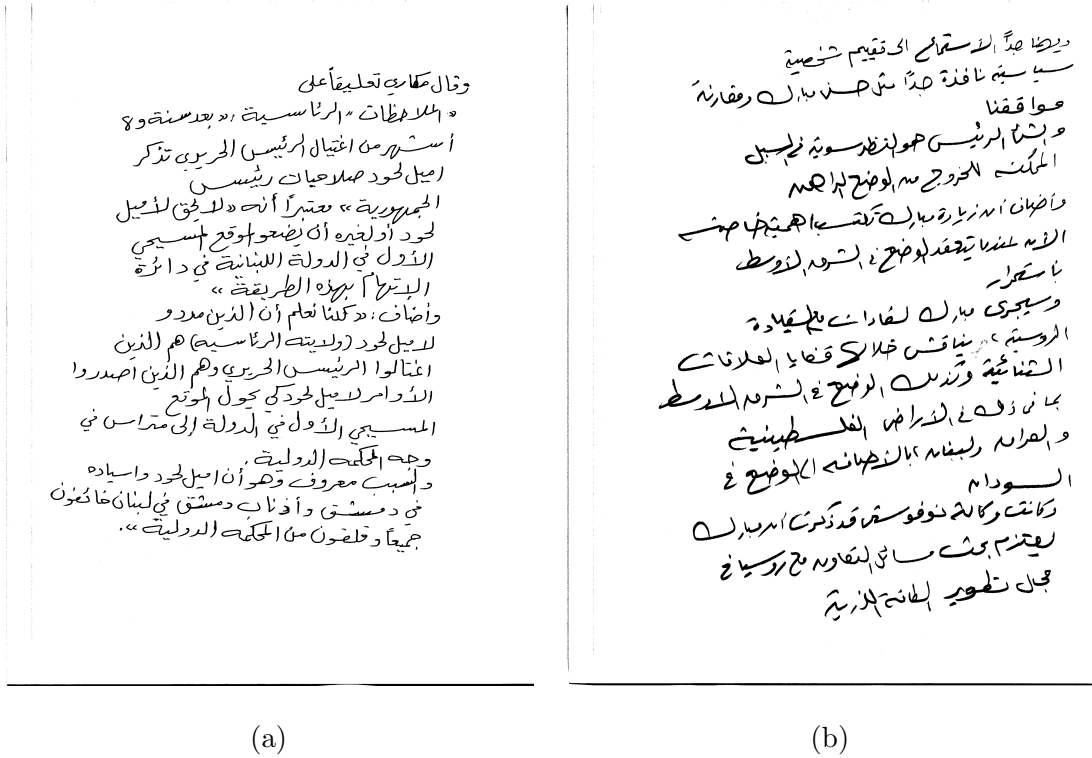 وقال مكاري تعليقاً على
"الملاحظات" الرئاسية: «بعد سنة و8
أشهر من اغتيال الرئيس الحريري تذكر
اميل لحود صلاحيات رئيس
الجمهورية» معتبراً أنه «لا يحق لأميل
لحود أو لغيره أن يضعو الموقع المسيحي
الأول في الدولة اللبنانية في دائرة
الإتهام بهذه الطريقة»
وأضاف: «كلنا نعلم أن الذين مددو
لاميل لحود (ولايته الرئاسية) هم الذين
اغتالوا الرئيس الحريري وهم الذين أصدروا
الأوامر لاميل لحود كي يحول الموقع
المسيحي الأول في الدولة إلى متراس في
وجه المحكمة الدولية.
والسبب معروف وهو أن اميل لحود واسياده
في دمشق وأذناب دمشق في لبنان خائفون
جميعاً وقلقون من المحكمة الدولية».
(a)
ويهمنا جداً الاستماع الى تقييم شخصية
سياسية نافذة جداً مثل حسني مبارك ومقارنة
مواقفنا
والشأن الرئيس هو النظر سوية في السبل
الممكنة للخروج من الوضع الراهن
وأضاف ان زيارة مبارك تكتسب اهمية خاصة
الآن عندما يتعقد الوضع في الشرق الأوسط
باستمرار
وسيجري مبارك لقاءات مع القيادة
الروسية يناقش خلالها قضايا العلاقات
الثنائية وكذلك الوضع في الشرق الاوسط
بما في ذلك في الأراضي الفلسطينية
و العراق ولبنان بالأضافة الى الوضع في
السودان
وكانت وكالة نوفوستي قد ذكرت ان مبارك
يعتزم بحث مسائل التعاون مع روسيا في
مجال تطوير الطاقة الذرية
(b)